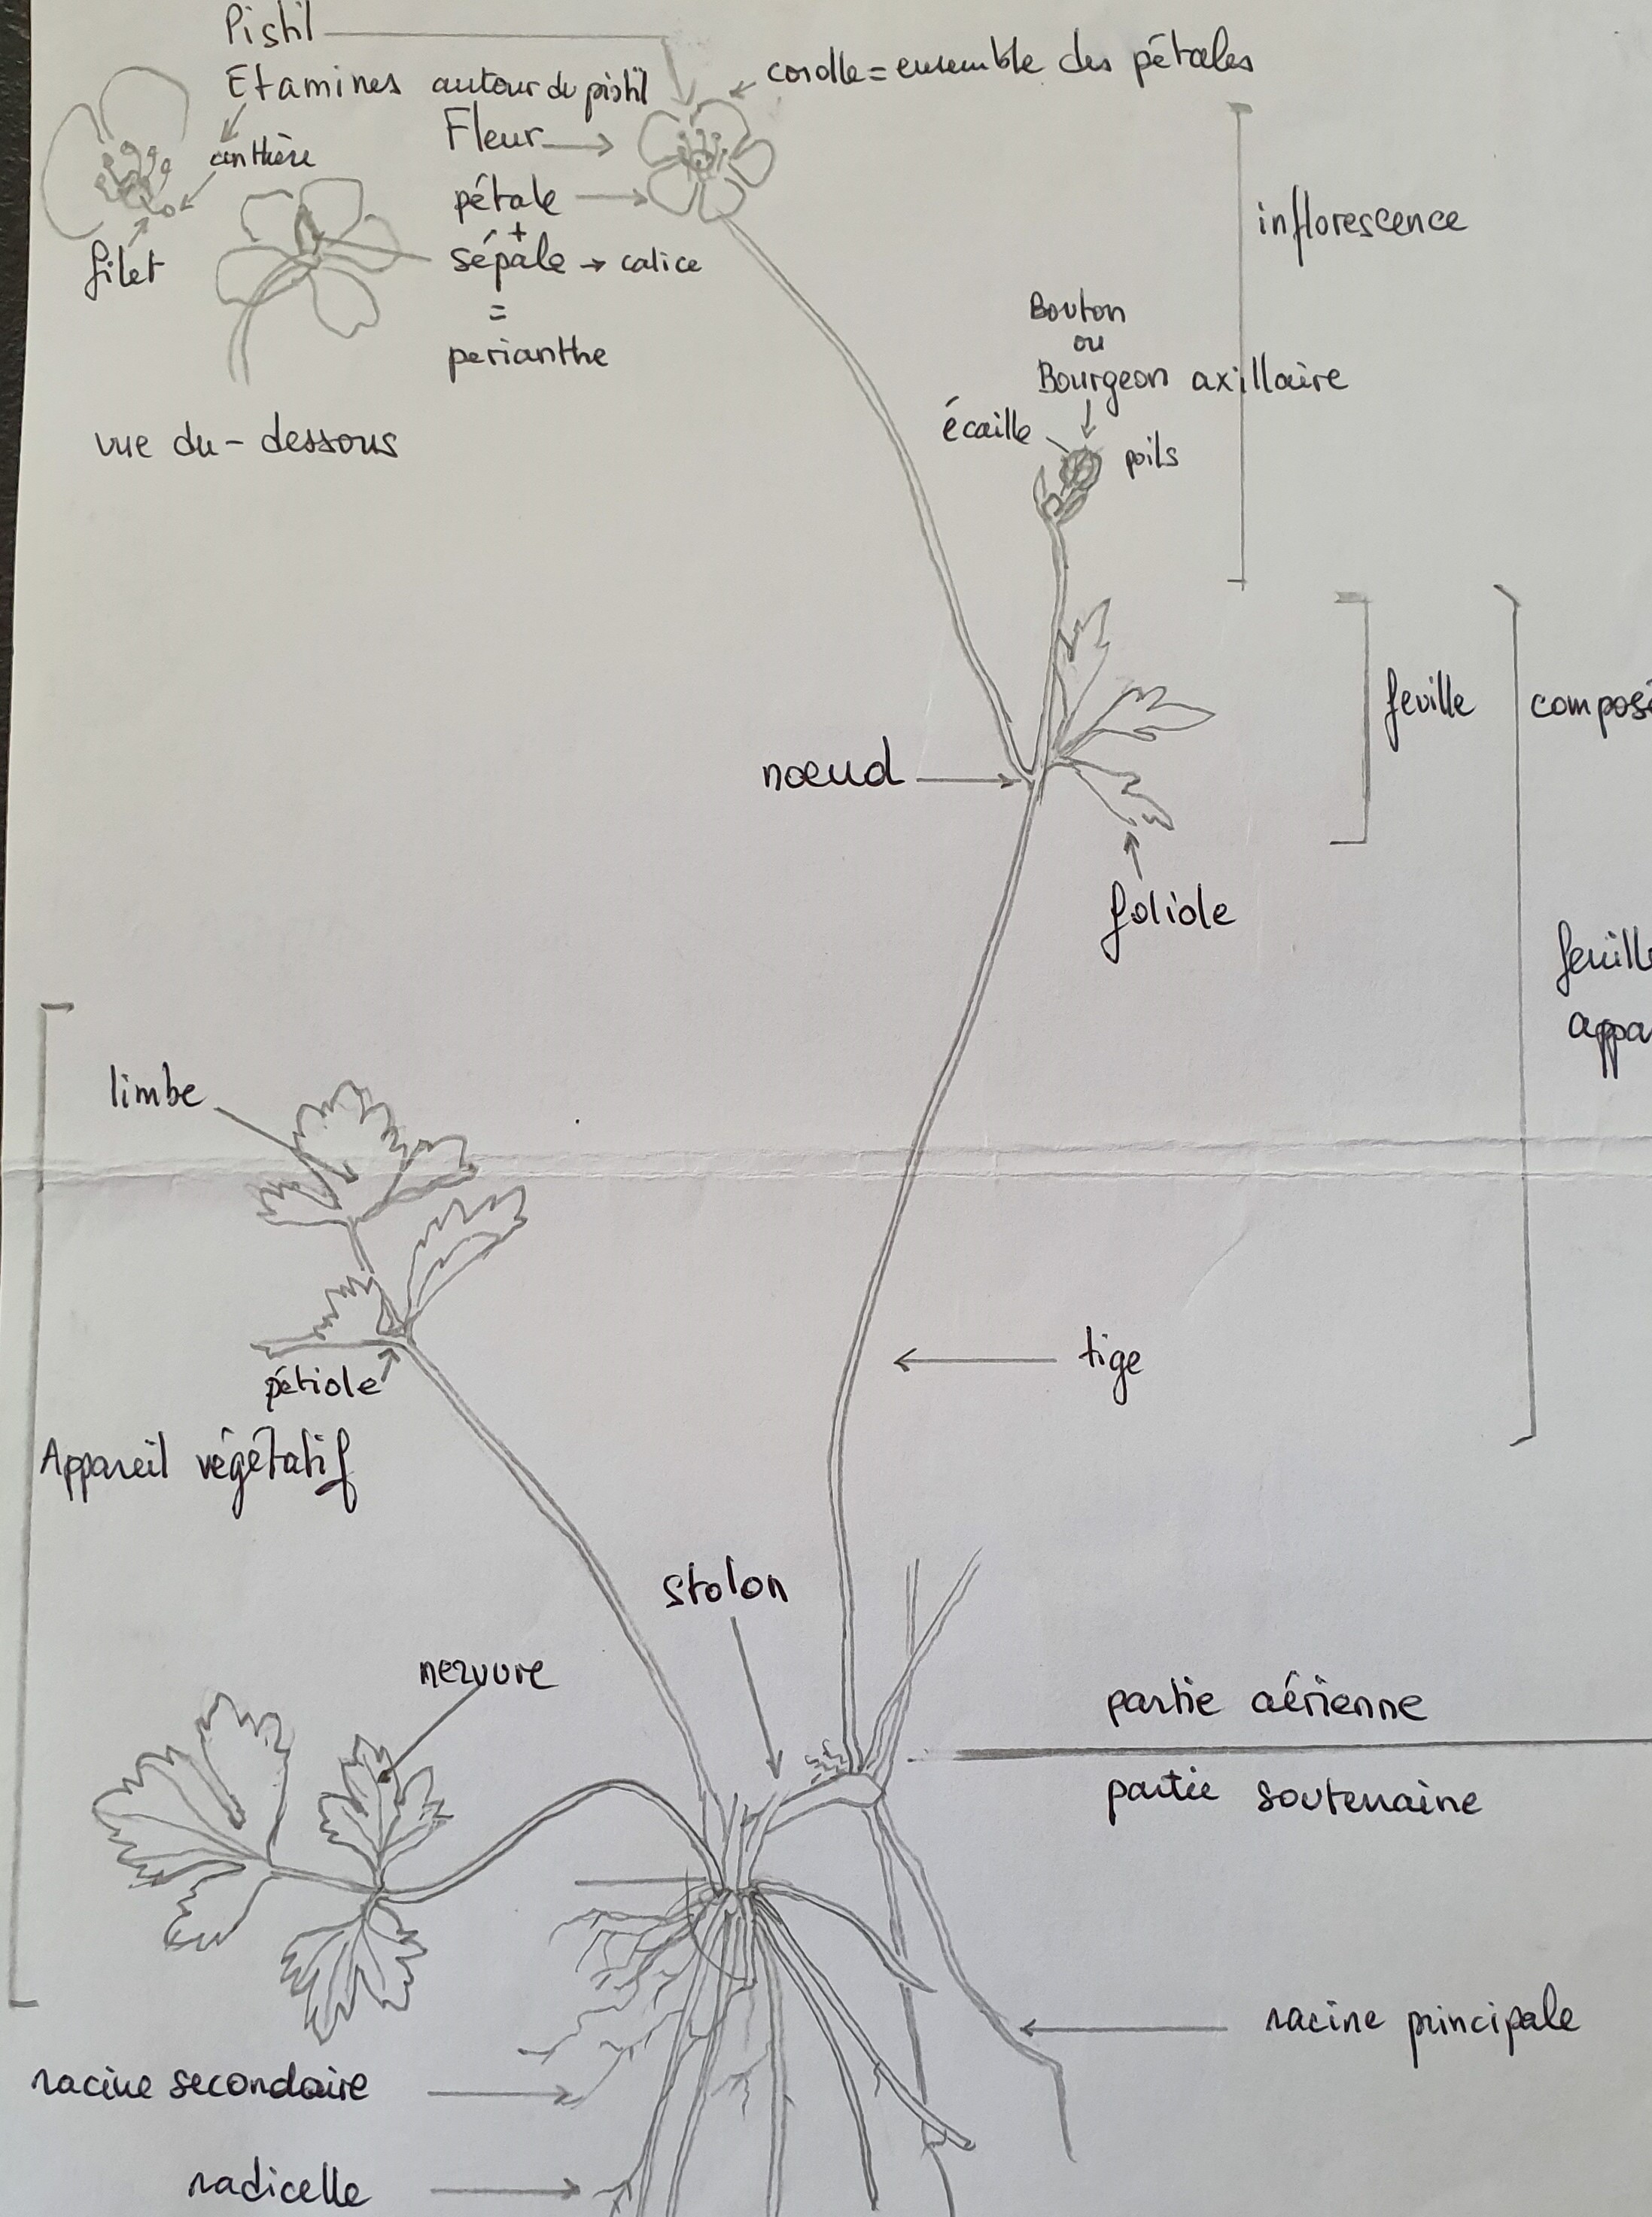 Pistil
Etamines autour du pistil
corolle = ensemble des pétales
Fleur
anthère
pétale
+
inflorescence
filet
sépale → calice
=
perianthe
Bouton
ou
Bourgeon axillaire
écaille
poils
vue du-dessous
feuille
compos
nœud
foliole
feuill
appa
limbe
tige
pétiole
Appareil végétatif
stolon
nervure
partie aérienne
partie souterraine
racine principale
racine secondaire
radicelle